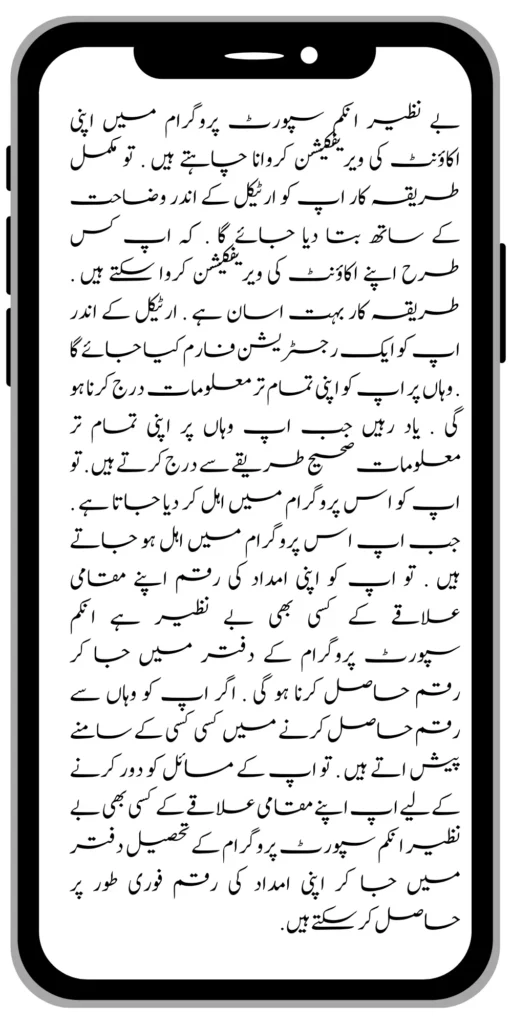 بے نظیر انکم سپورٹ پروگرام میں اپنی
اکاؤنٹ کی ویریفکیشن کروانا چاہتے ہیں . تو مکمل
طریقہ کار اپ کو ارٹیکل کے اندر وضاحت
کے ساتھ بتا دیا جائے گا . کہ اپ کس
طرح اپنے اکاؤنٹ کی ویریفکیشن کروا سکتے ہیں .
طریقہ کار بہت اسان ہے . ارٹیکل کے اندر
اپ کو ایک رجسٹریشن فارم کیا جائے گا
. وہاں پر اپ کو اپنی تمام تر معلومات درج کرنا ہو
گی . یاد رہیں جب اپ وہاں پر اپنی تمام تر
معلومات صحیح طریقے سے درج کرتے ہیں . تو
اپ کو اس پروگرام میں اہل کر دیا جاتا ہے .
جب اپ اس پروگرام میں اہل ہو جاتے
ہیں . تو اپ کو اپنی امداد کی رقم اپنے مقامی
علاقے کے کسی بھی بے نظیر ہے انکم
سپورٹ پروگرام کے دفتر میں جا کر
رقم حاصل کرنا ہو گی . اگر اپ کو وہاں سے
رقم حاصل کرنے میں کسی کسی کے سامنے
پیش اتے ہیں . تو اپ کے مسائل کو دور کرنے
کے لیے اپ اپنے مقامی علاقے کے کسی بھی بے
نظیر انکم سپورٹ پروگرام کے تحصیل دفتر
میں جا کر اپنی امداد کی رقم فوری طور پر
حاصل کر سکتے ہیں .